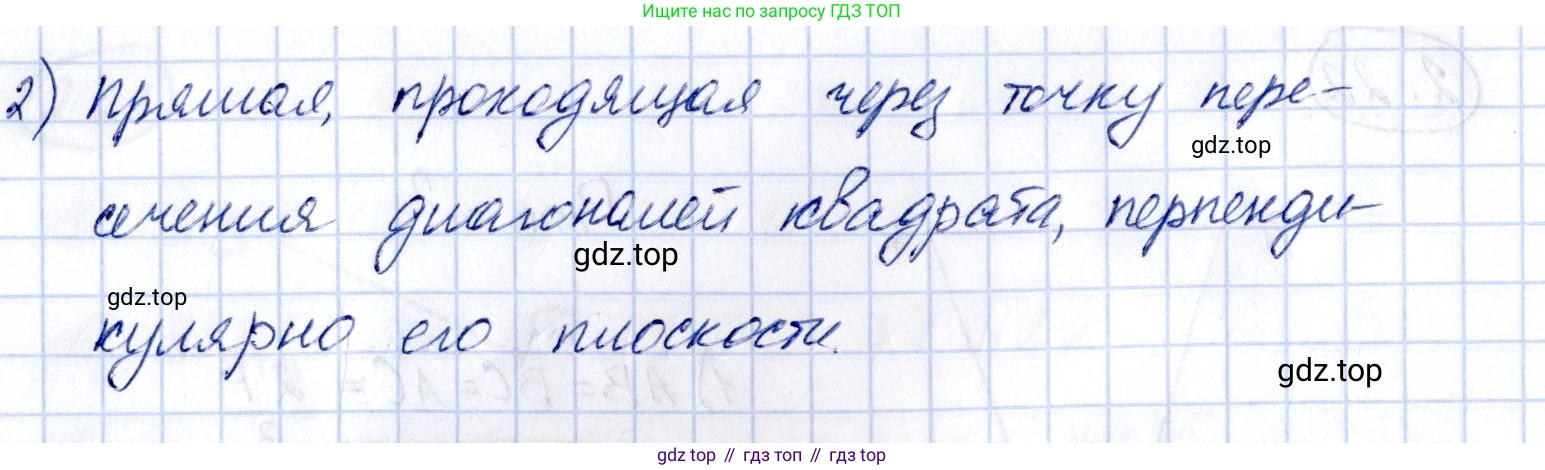 Ищите нас по запросу ГДЗ ТОП
2) Прямая, проходящая через точку пере-
gdz.top
сечения диагоналей квадрата, перпенди-
gdz.top
gdz.top
кулярно его плоскости.
gdz.top
gdz top // гдз топ // гдз top